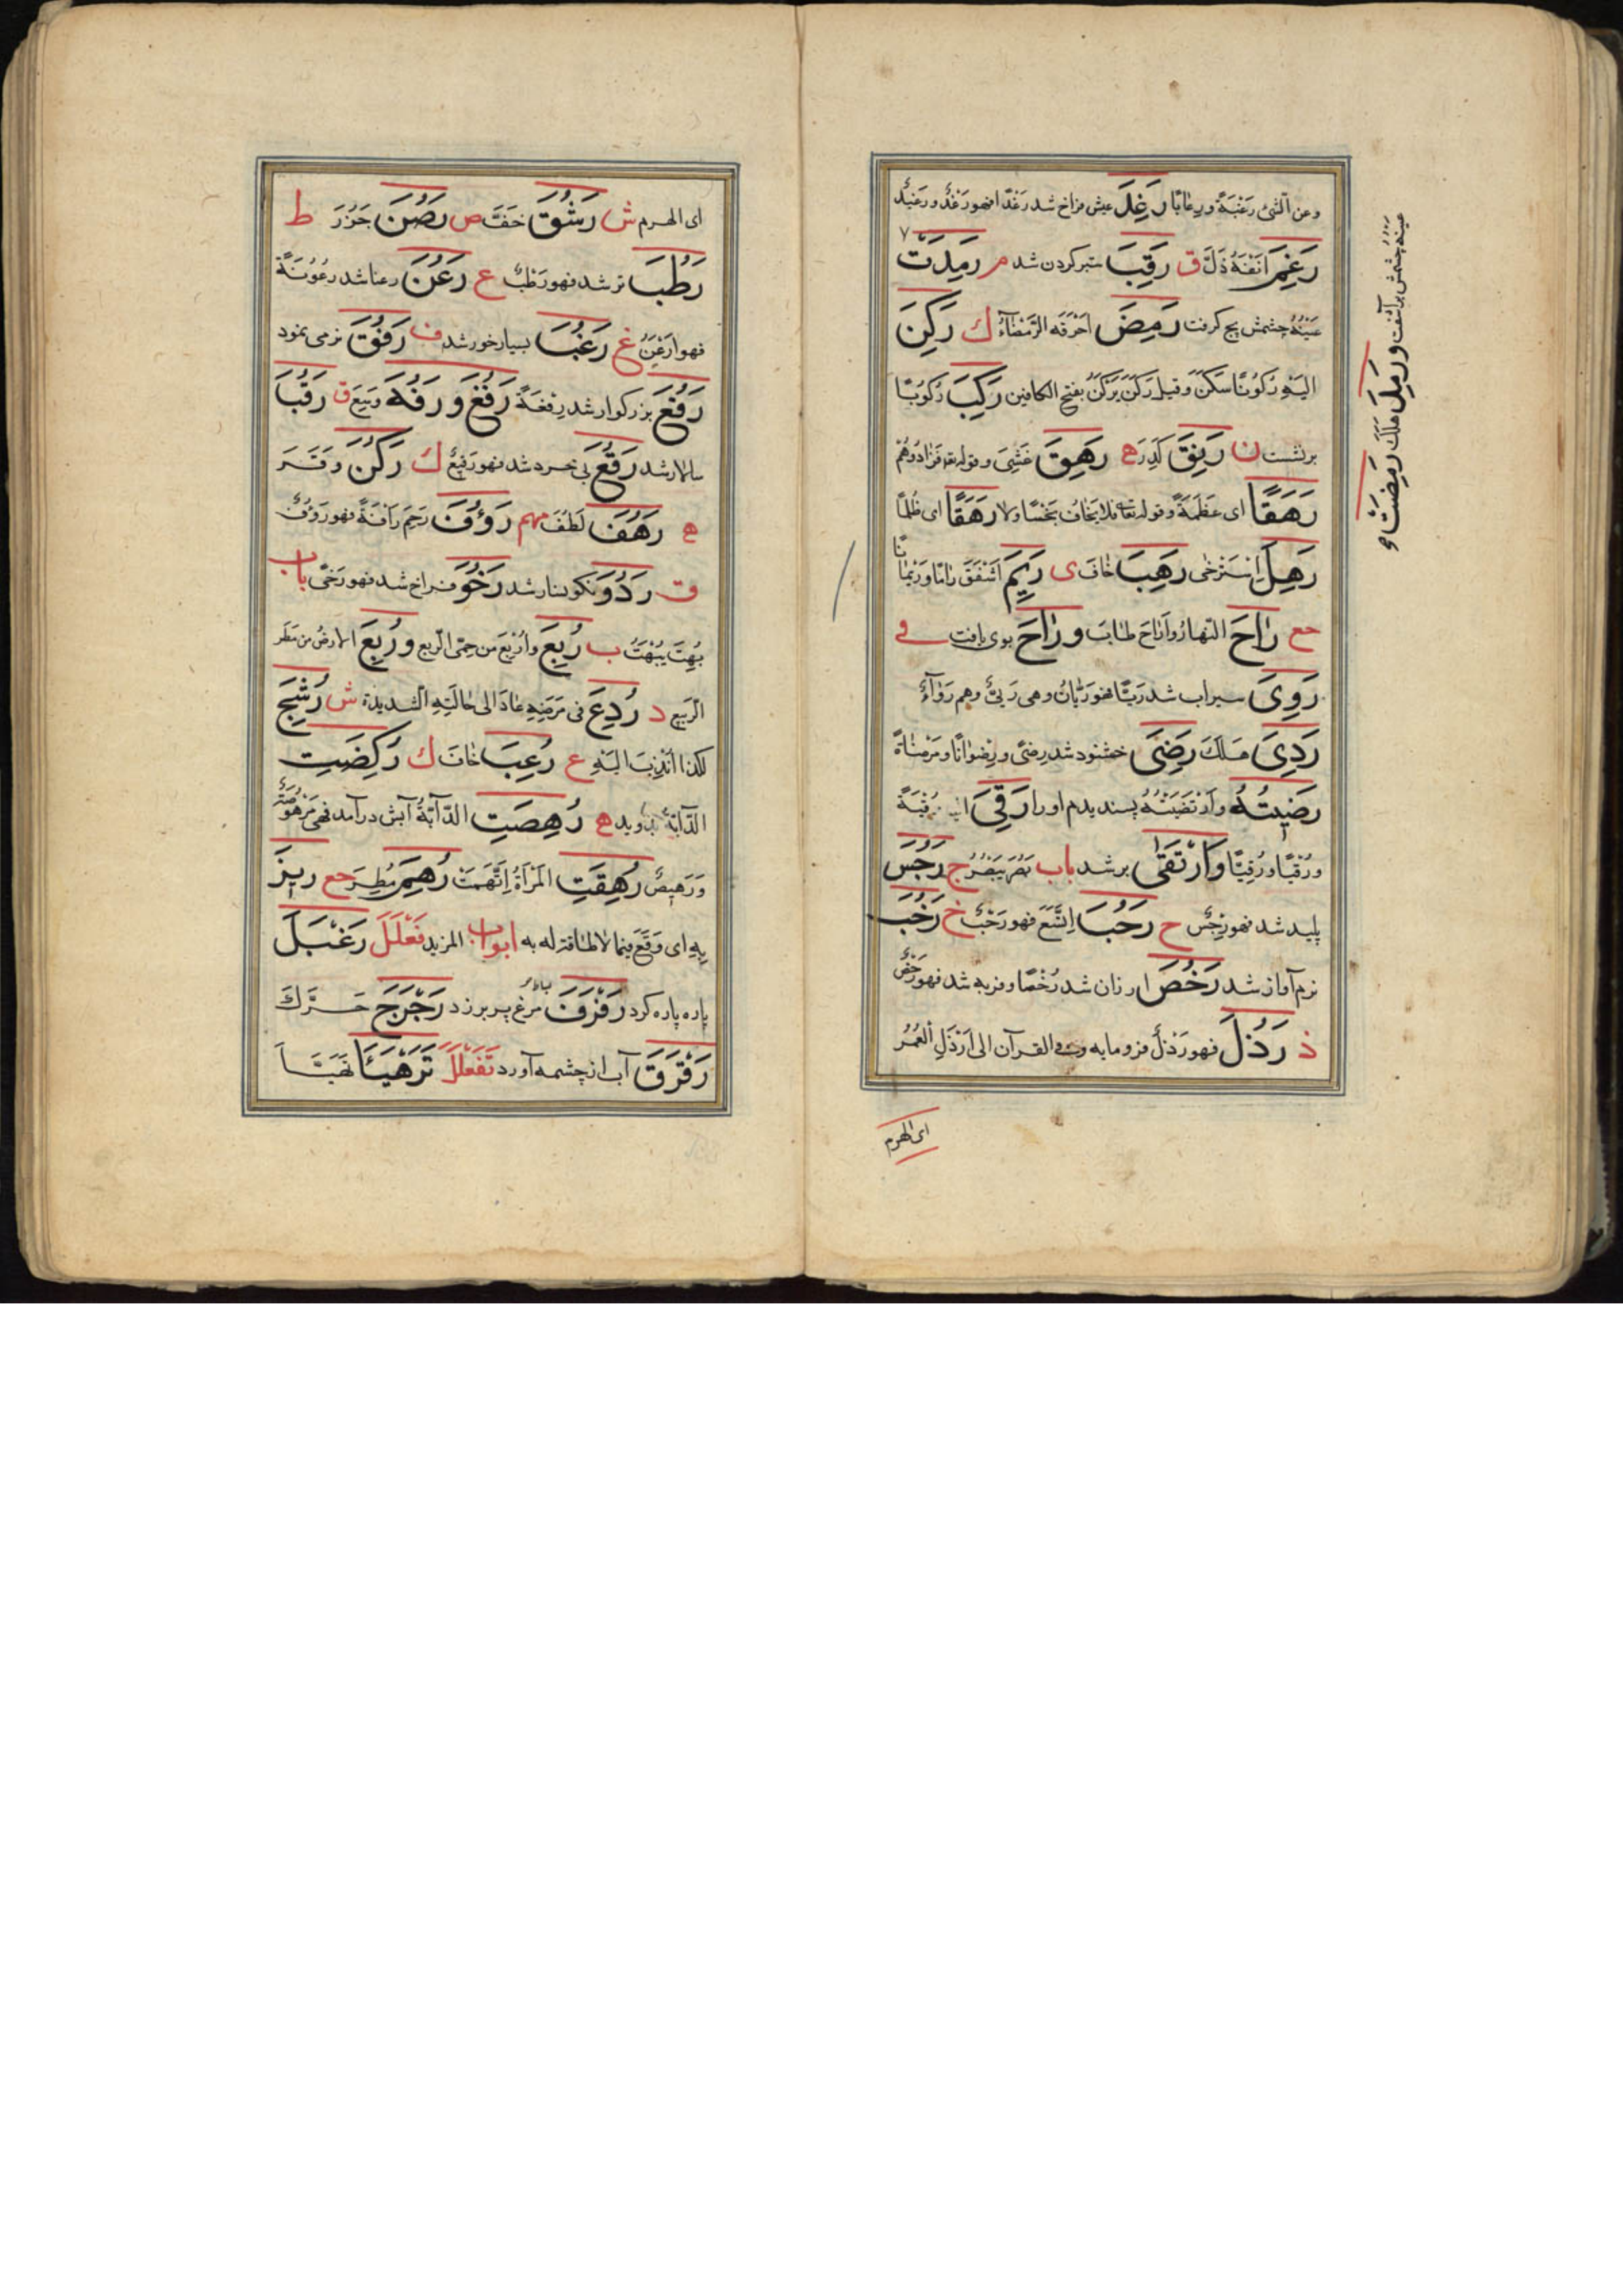 وعن الشئ رَغْبَةً ورِغابًا رَغِدَ عیش فراخ شد رَغَدًا فهو رَغْدٌ و رَغِیدٌ
رَغِمَ اَنْفُهُ ذَلَّ ق رَقِبَ ستبر کردن شد م رَمِدَتْ
عَیْنُهُ چشمش پیچ کرفت رَمِضَ اَحْرَقَه الرَّمْضَاءُ ك رَكِنَ
اِلَیْهِ رُكُونًا سَكَنَ وقیل رَكَنَ یَرْكَنُ بفتح الکافین رَكِبَ رُکُوبًا
برنشست ن رَنِقَ كَدِرَ ه رَهِقَ غَشِیَ وقوله تعه فَزَادُوهُمْ
رَهَقًا ای عَظَمَةً وقوله تعالی فلا یَخَافُ بَخْسًا ولا رَهَقًا ای ظُلْمًا
رَهِلَ اِسْتَرْخٰی رَهِبَ خَافَ ی رَئِمَ اَشْفَقَ
مع رَاحَ النَّهارُ وأَرَاحَ طَابَ و رَاحَ بوی یافت فی
رَوِیَ سیراب شد رَیًّا فهو رَیَّانُ وهی رَیّٰ وهم رِوَاءٌ
رَدِیَ هَلَكَ رَضِیَ خشنود شد رِضًی و رِضْوَانًا و مَرْضَاةً
رَضِیتُهُ وارْتَضَیْتُهُ پسندیدم اورا رَقِیَ رُقْیَةً
ورُقْیًا ورُقِیًّا وَارْتَقٰی برشد باب نَصُرَ یَنْصُرُ ج رَجُسَ
پلید شد فهو رَجِسٌ ح رَحُبَ اِتَّسَعَ فهو رَحْبٌ خ رَخُبَ
نرم آواز شد رَخُصَ ارزان شد رُخْصًا وفربه شد فهو رَخْصٌ
ذ رَذُلَ فهو رَذْلٌ فرومایه وفی القرآن الی اَرْذَلِ الْعُمُرِ
ای الهرم
عینهُ چشمش برآشفت و رَمِلَ هلك رَمِضَتْ
ای الهرم ش رَشُقَ خَفَّ ص رَصُنَ جَزُرَ ط
رَطُبَ تر شد فهو رَطْبٌ ع رَعُنَ رعنا شد رُعُونَةً
فهو اَرْعَنُ غ رَغُبَ بسیار خور شد ف رَفُقَ نرمی نمود
رَفُعَ بزرکوار شد رِفْعَةً رَفُغَ و رَفُهَ وَسِعَ ق رَقُبَ
سالار شد رَقُعَ بی خرد شد فهو رَقِیعٌ ك رَكُنَ وَقَرَ
ه رَهُفَ لَطُفَ مهم رَؤُفَ رَحِمَ رَأْفَةً فهو رَؤُفٌ
ق رَدُوَ نکوسار شد رَخُوَ فراخ شد فهو رَخِیٌّ باب
بُهِتَ یُبْهَتُ ب رُبِعَ وأُرْبِعَ من حمّی الربع و رُبِعَ الارضُ من مَطَر
الرَّبیعِ د رُدِعَ فی مَرَضِهِ عادَ الی حالَتِهِ الشدیدة ش رُشِحَ
لكذا اُنْدِبَ اِلَیْهِ ع رُعِبَ خَافَ ك رُكِضَتِ
الدَّابَّةُ بدوید ه رُهِصَتِ الدّابّةُ آبش درآمد فهی مَرْهُوصَةٌ
وَرَهِیصٌ رُهِقَتِ الْمَرْأَةُ اِتُّهِمَتْ رُهِمَ مُطِرَ مع رِینَ
بِهِ ای وَقَعَ فیما لا طاقة له به ابواب المزید فَعْلَلَ رَعْبَلَ
پاره پاره کرد رَفْرَفَ مرغ پر برزد رَجْرَجَ حَرَّكَ
رَقْرَقَ آب از چشمه آورد تَفَعْلَلَ تَرَهْیَأَ تَهَیَّأَ